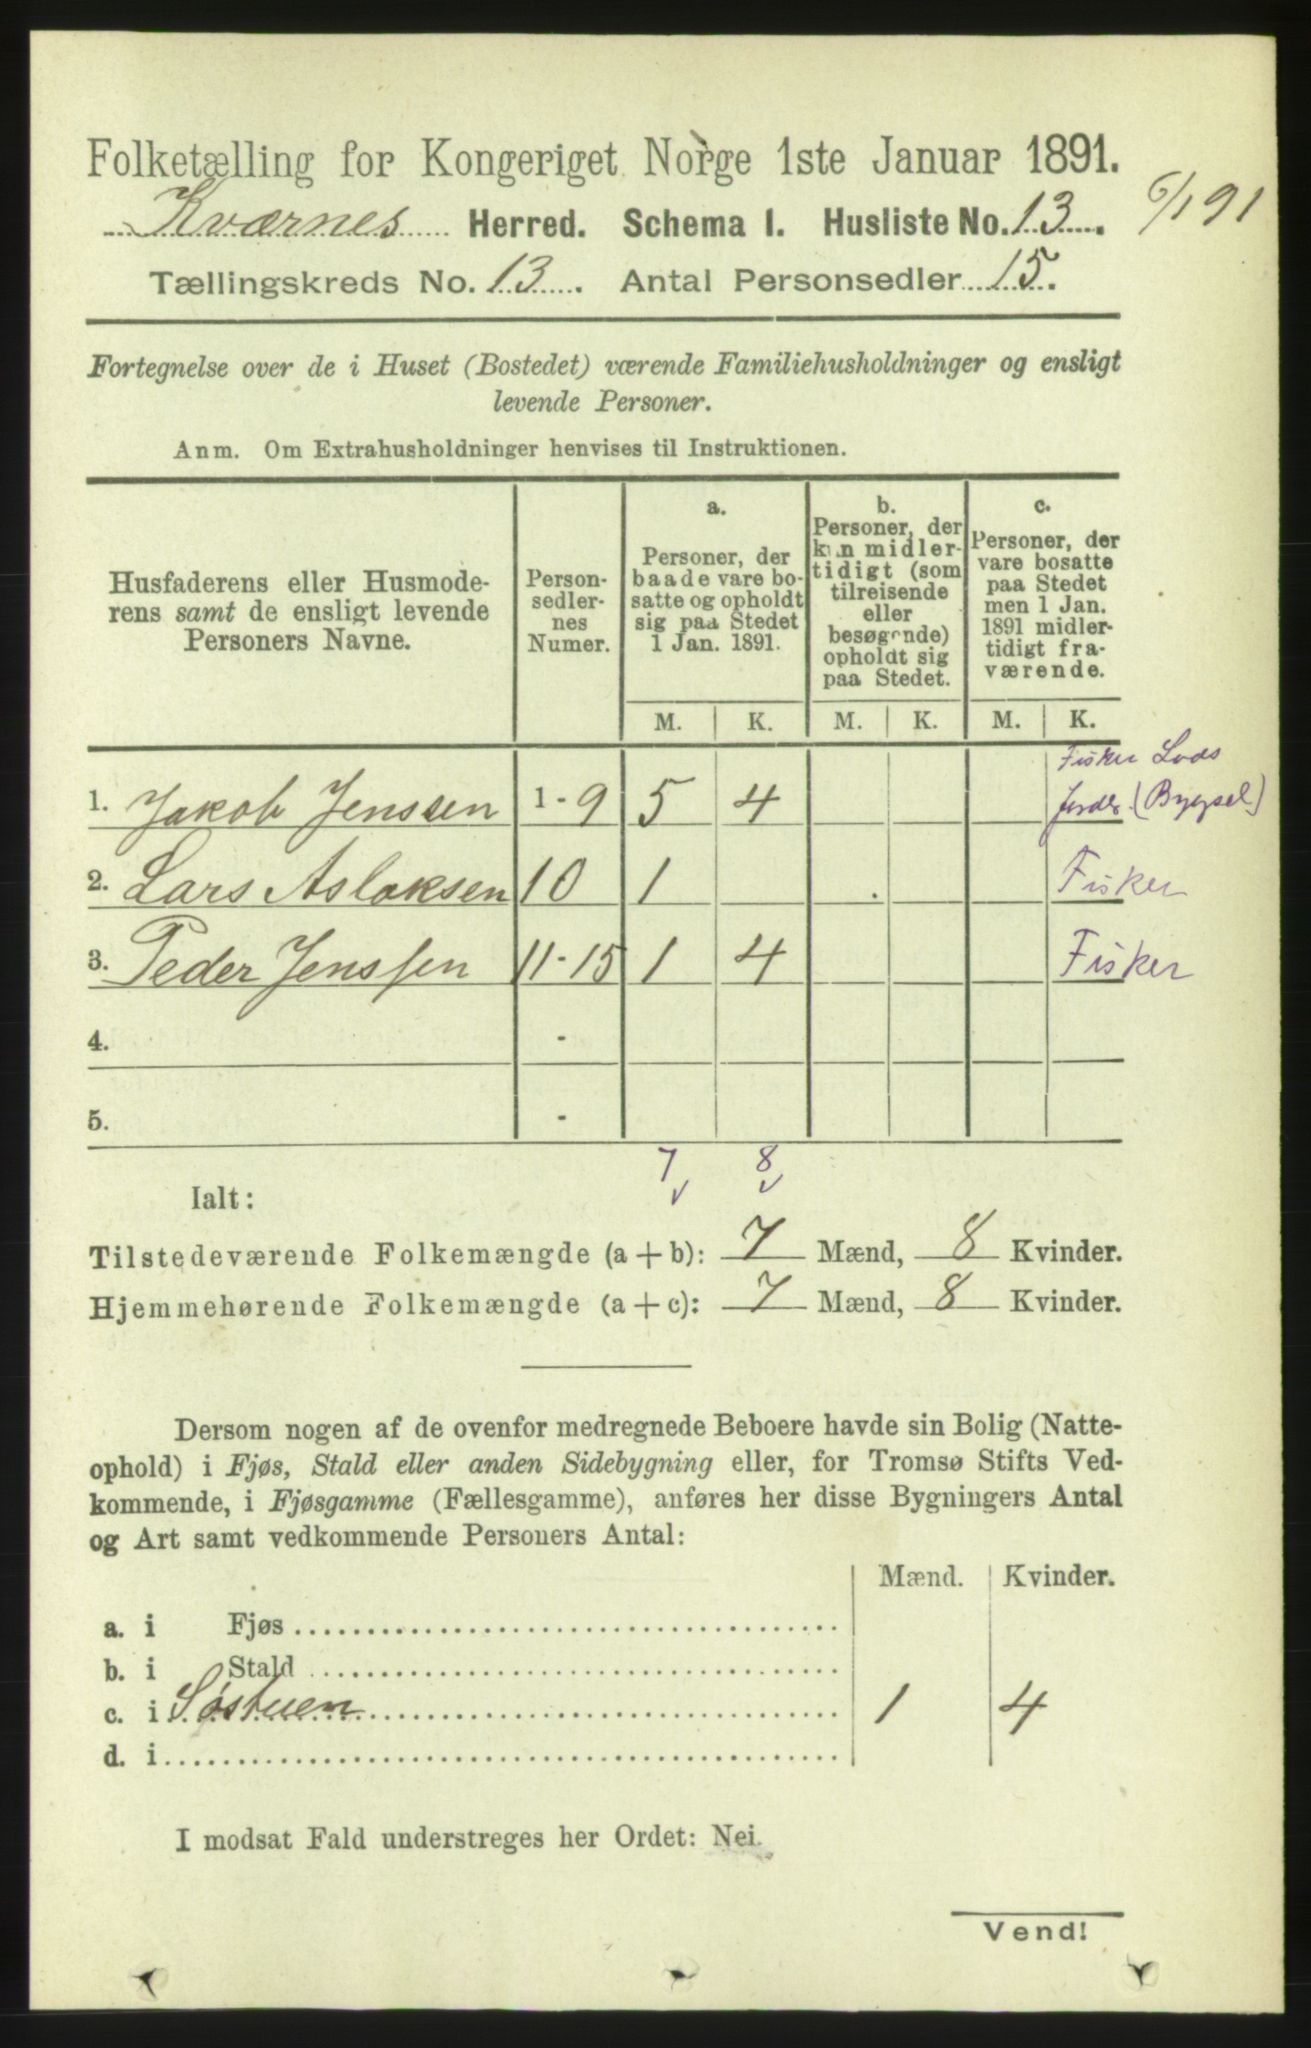 Folketælling for Kongeriget Norge 1ste Januar 1891.
Kværnes Herred. Schema I. Husliste No. 13. 6/1 91
Tællingskreds No. 13. Antal Personsedler 15.
Fortegnelse over de i Huset (Bostedet) værende Familiehusholdninger og ensligt
levende Personer.
Anm. Om Extrahusholdninger henvises til Instruktionen.
Husfaderens eller Husmode-
rens samt de ensligt levende
Personers Navne.
Person-
sedler-
nes
Numer.
a.
Personer, der
baade vare bo-
satte og opholdt
sig paa Stedet
1 Jan. 1891.
b.
Personer, der
kun midler-
tidigt (som
tilreisende
eller
besøgende)
opholdt sig
paa Stedet.
c.
Personer, der
vare bosatte
paa Stedet
men 1 Jan.
1891 midler-
tidigt fra-
værende.
M. K. M. K. M. K.
Fisker Lods
1. Jakob Jenssen 1 - 9 5 4 Jordb. (Bygsel)
2. Lars Aslaksen 10 1 Fisker
3. Peder Jenssen 11 - 15 1 4 Fisker
4. -
5. -
7 8
Ialt:
Tilstedeværende Folkemængde (a + b): 7 Mænd, 8 Kvinder.
Hjemmehørende Folkemængde (a + c): 7 Mænd, 8 Kvinder.
Dersom nogen af de ovenfor medregnede Beboere havde sin Bolig (Natte-
ophold) i Fjøs, Stald eller anden Sidebygning eller, for Tromsø Stifts Ved-
kommende, i Fjøsgamme (Fællesgamme), anføres her disse Bygningers Antal
og Art samt vedkommende Personers Antal:
Mænd. Kvinder.
a. i Fjøs
b. i Stald
c. i Søstuen 1 4
d. i
I modsat Fald understreges her Ordet: Nei.
Vend!